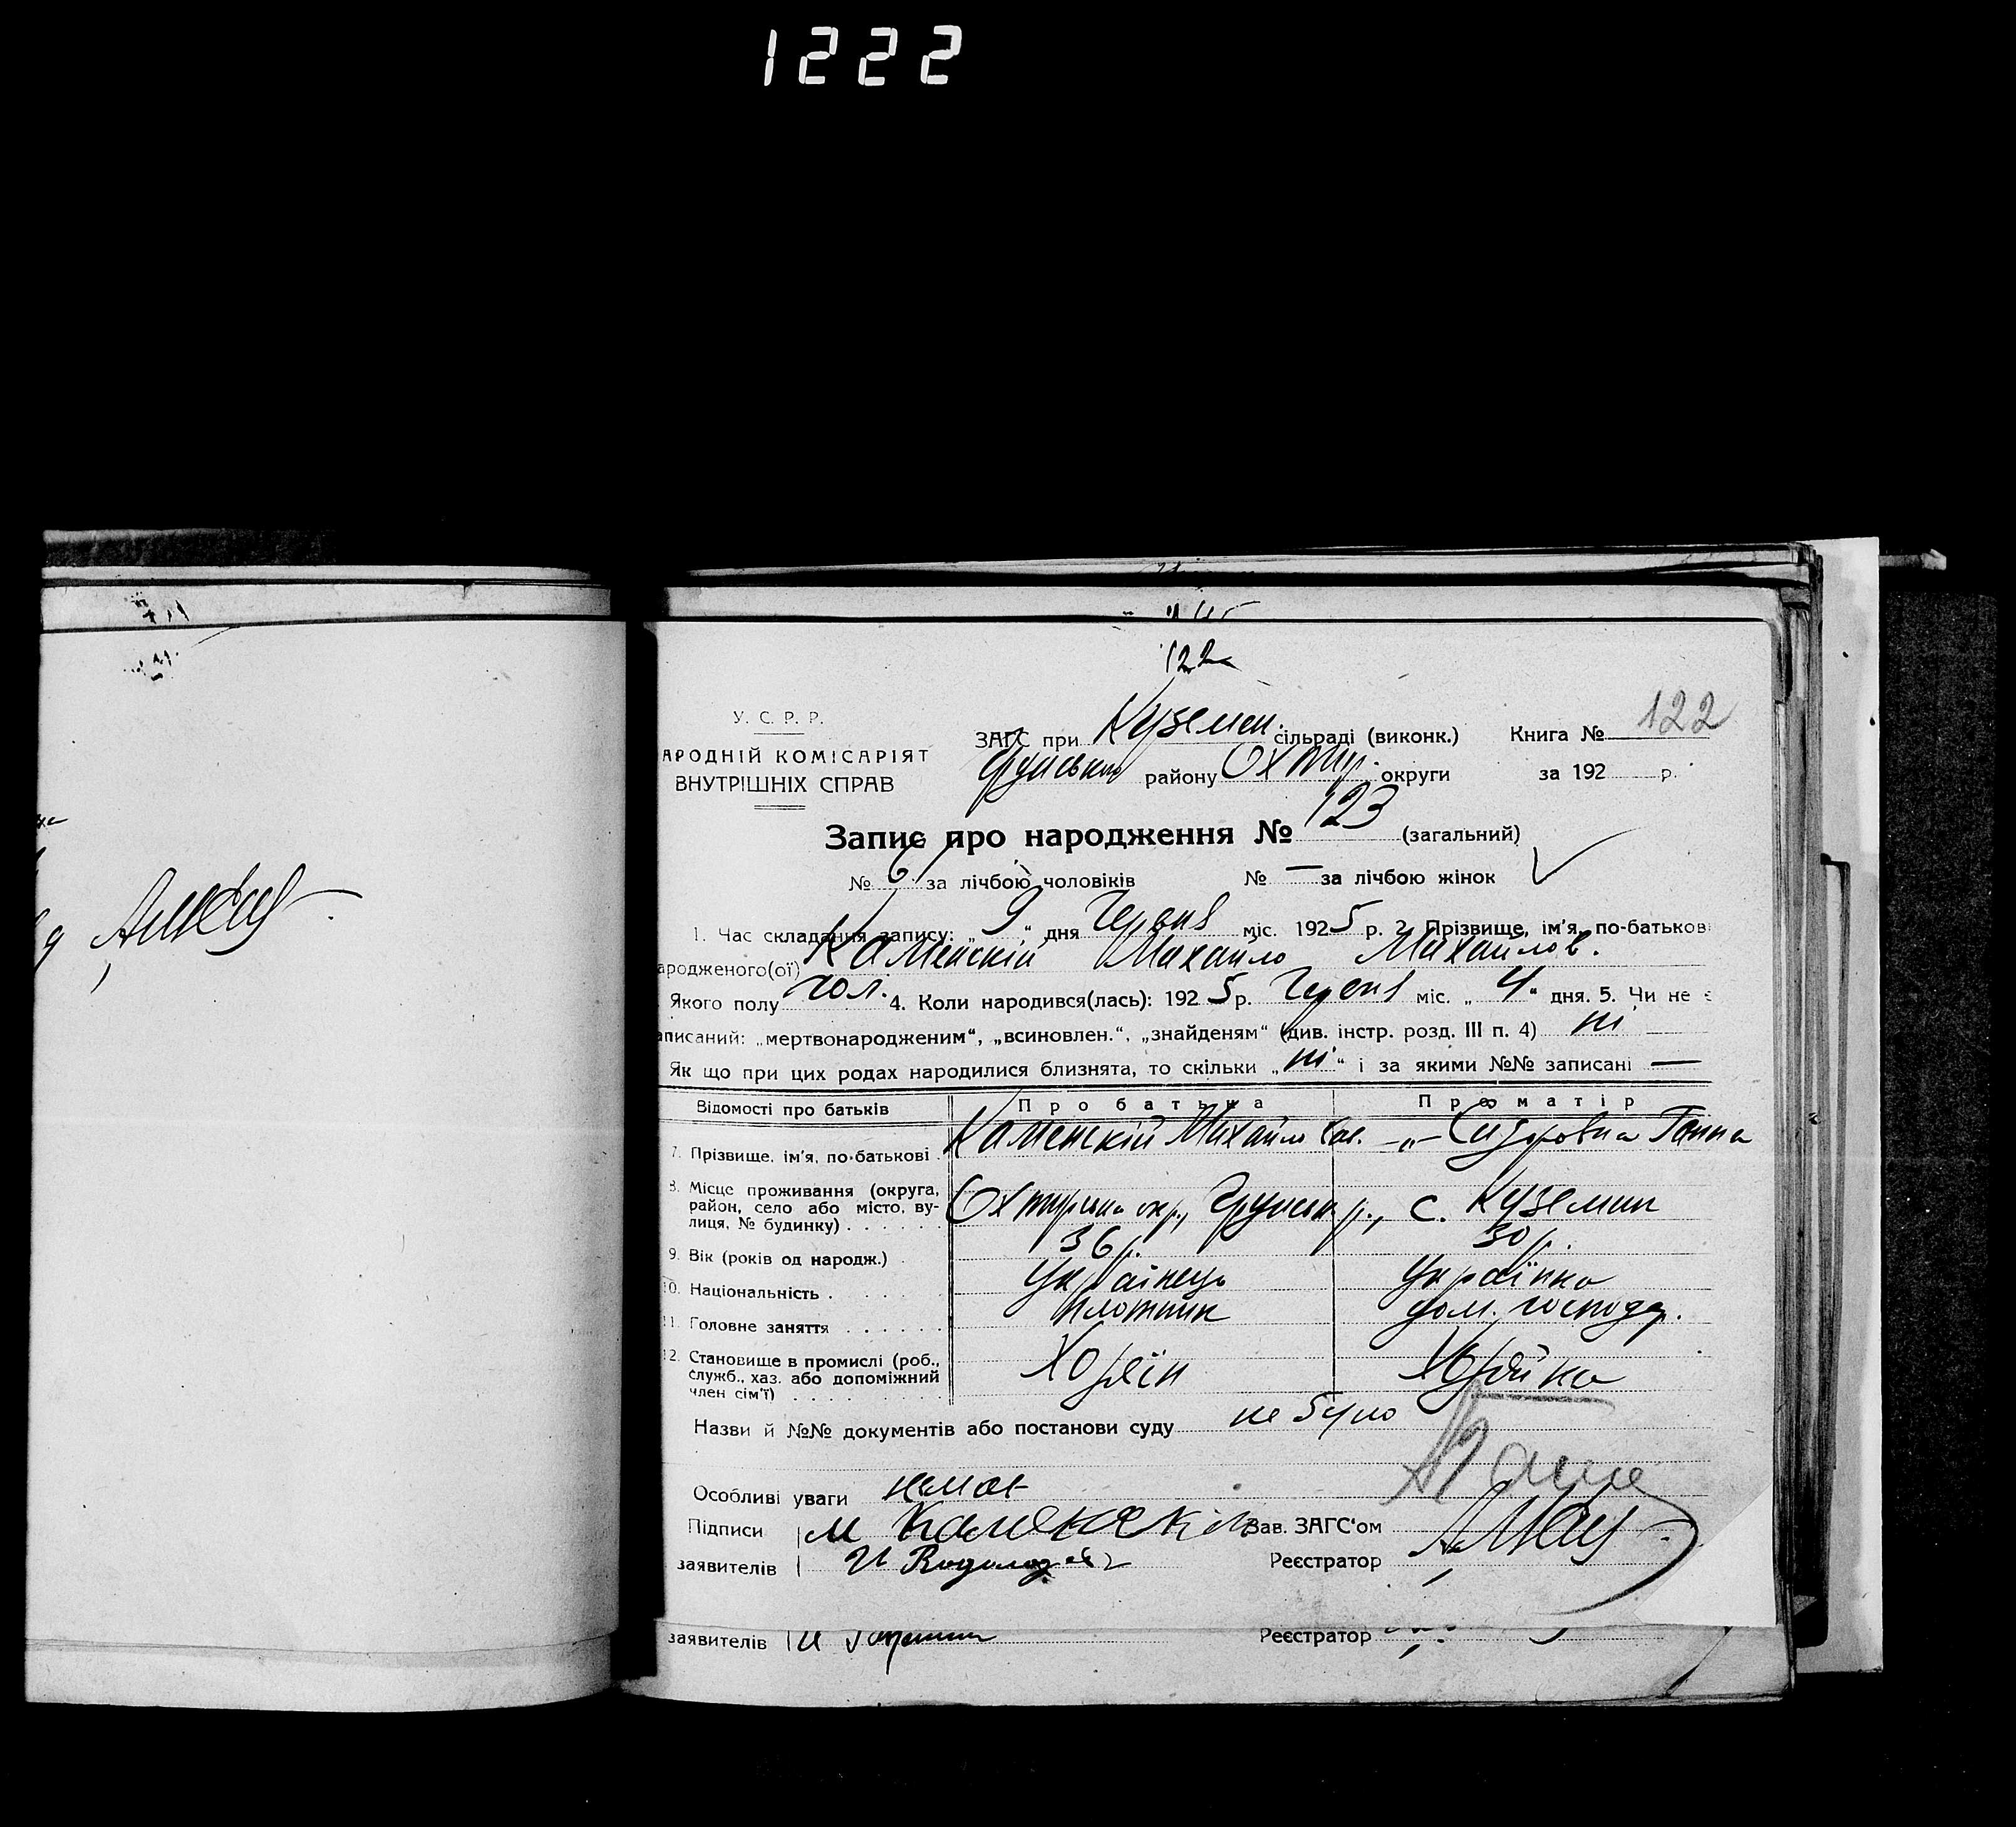 1222
122
У. С. Р. Р.
АРОДНІЙ КОМІСАРІЯТ
ВНУТРІШНІХ СПРАВ
ЗАГС при Куземен. сільраді (виконк.) Книга № 122
району Охтир. округи за 192 р.
Запис про народження № 123 (загальний)
№ 61 за лічбою чоловіків № — за лічбою жінок
1. Час складання запису: „ 9 “ дня Червня міс. 1925 р. 2. Прізвище, ім'я, по-батькові
ародженого(ої) Каменскій Михайло Михайлов.
Якого полу чол. 4. Коли народився(лась): 1925 р. Червня міс. „ 4 “ дня. 5. Чи не є
аписаний: „мертвонародженим“, „всиновлен.“, „знайденям“ (див. інстр. розд. III п. 4) ні
Як що при цих родах народилися близнята, то скільки „ ні “ і за якими №№ записані —
Відомості про батьків Про батька Про матір
7. Прізвище, ім'я, по-батькові Каменскій Михайло Сав. —„— Сидоровна Ганна
8. Місце проживання (округа,
район, село або місто, ву-
лиця, № будинку) Охтирська окр., Грунськ р., с. Куземин
9. Вік (років од народж.) 36 р. 30 р.
10. Національність Українець Українка
11. Головне заняття плотник дом. господар.
12. Становище в промислі (роб.,
служб., хаз. або допоміжний
член сім'ї) Хозяїн Хозяйка
Назви й №№ документів або постанови суду не було
Особливі уваги немає
Підписи М Каменскій Зав. ЗАГС'ом
заявителів И Реєстратор
заявителів И Реєстратор